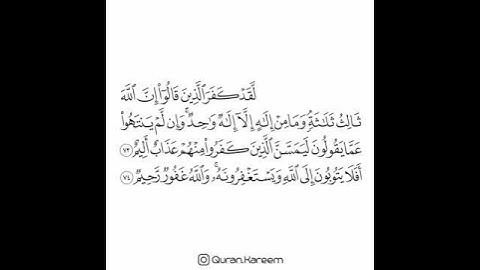 لَّقَدْ كَفَرَ ٱلَّذِينَ قَالُوٓا۟ إِنَّ ٱللَّهَ
ثَالِثُ ثَلَـٰثَةٍۘ وَمَا مِنْ إِلَـٰهٍ إِلَّآ إِلَـٰهٌ وَٰحِدٌۚ وَإِن لَّمْ يَنتَهُوا۟
عَمَّا يَقُولُونَ لَيَمَسَّنَّ ٱلَّذِينَ كَفَرُوا۟ مِنْهُمْ عَذَابٌ أَلِيمٌ ٧٣
أَفَلَا يَتُوبُونَ إِلَى ٱللَّهِ وَيَسْتَغْفِرُونَهُۥۚ وَٱللَّهُ غَفُورٌ رَّحِيمٌ ٧٤
Quran.Kareem